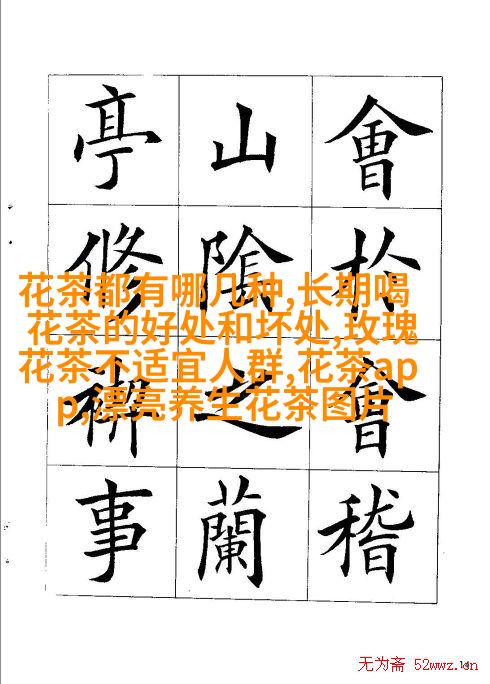 會扵會稽
山隂之蘭
亭修禊事
花茶都有哪几种,长期喝
花茶的好处和坏处,玫瑰
花茶不适宜人群,花茶ap
p,漂亮养生花茶图片
无为斋 52wwz.cn